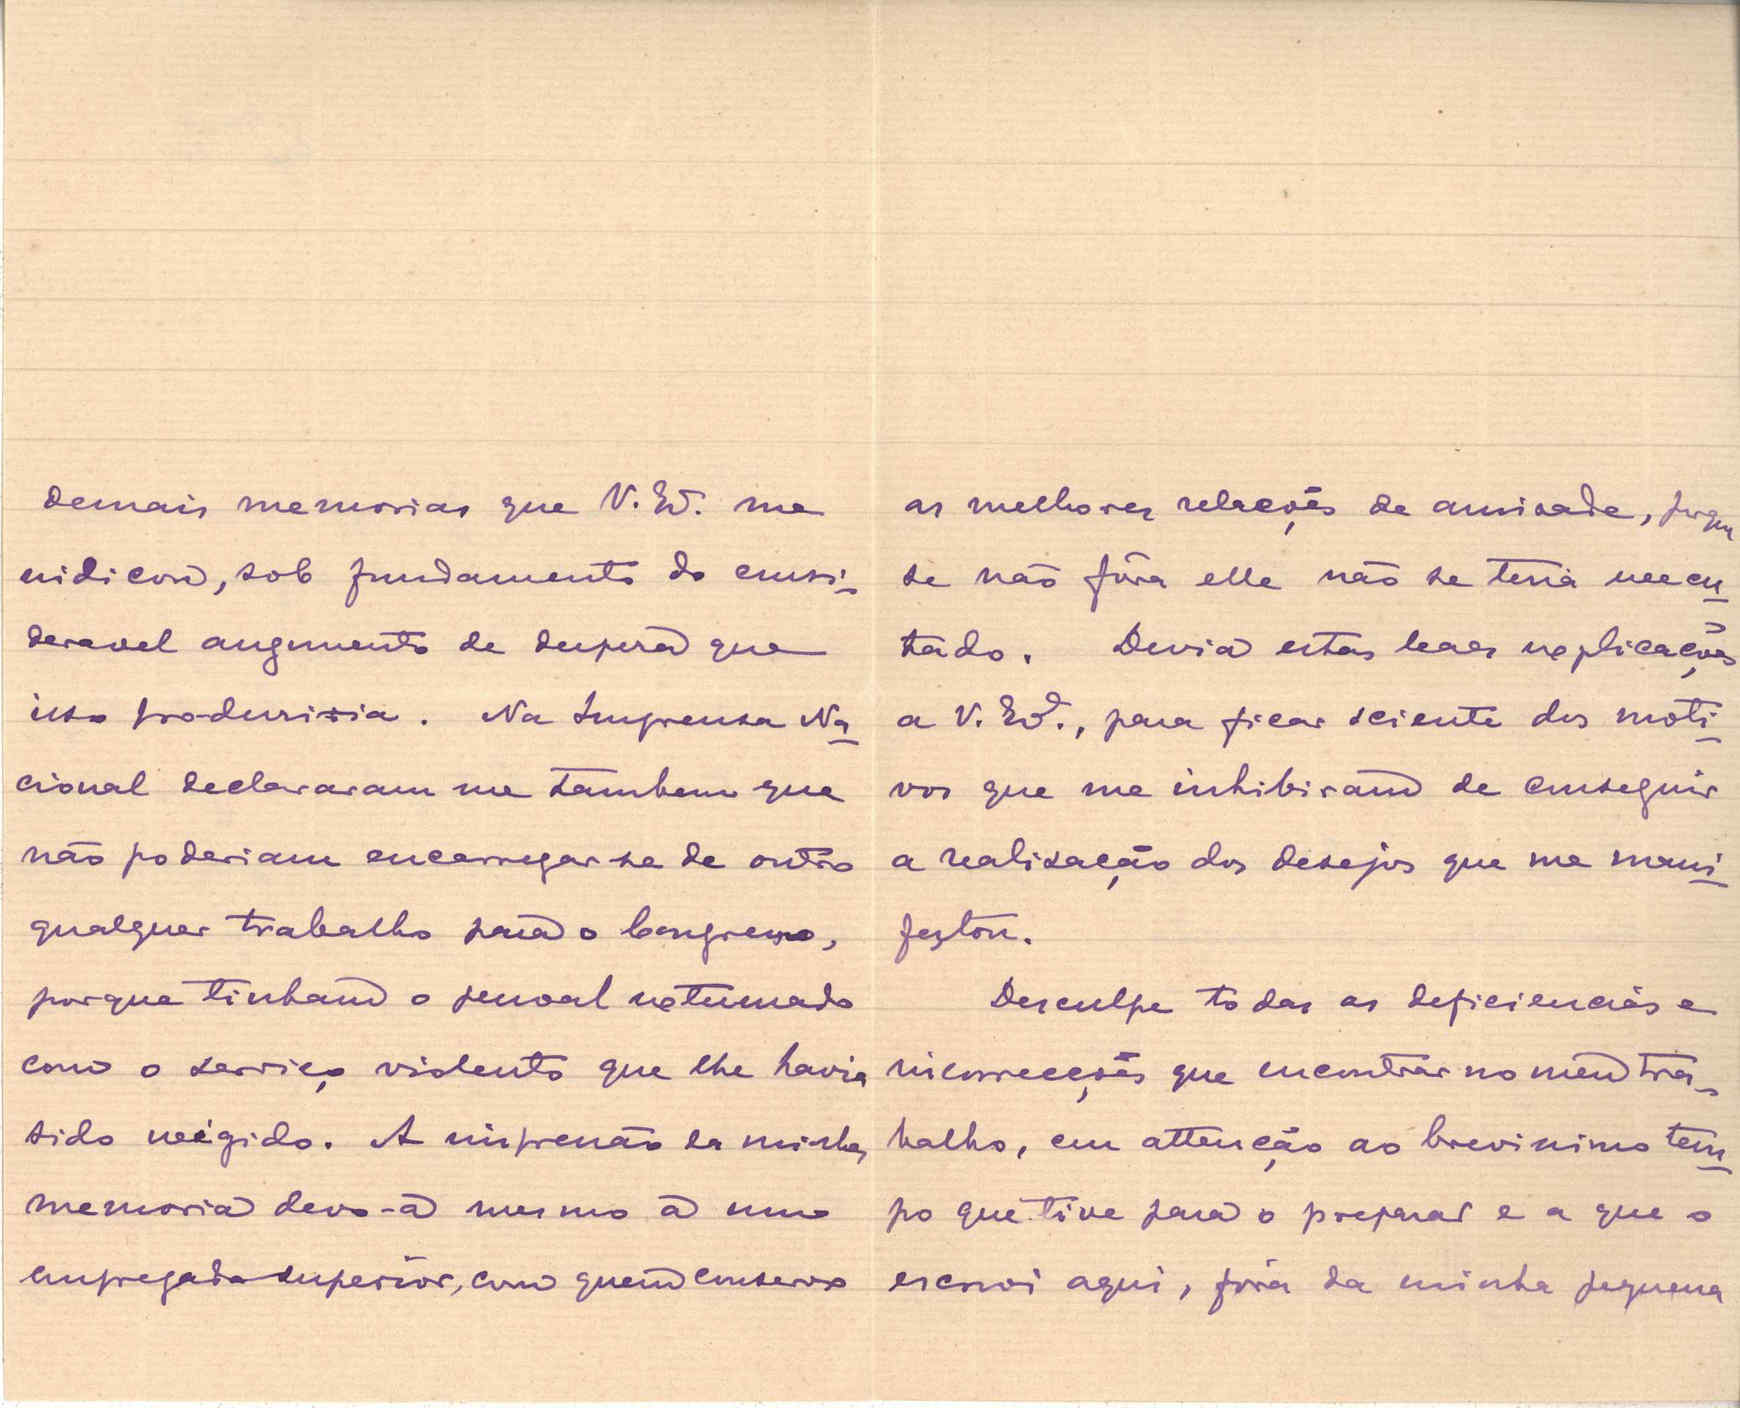 demais memorias que V. Ex.ª me
indicou, sob fundamento do consi-
deravel augmento de despesa que
isso produziria. Na Imprensa Na-
cional declararam me tambem que
não poderiam encarregar-se de outro
qualquer trabalho para o Congresso,
porque tinham o pessoal extenuado
com o serviço violento que lhe havia
sido exigido. A impressão da minha
memoria devo-a mesmo a um
empregado superior, com quem conservo
as melhores relações de amisade, porque
se não fôra elle não se teria execu-
tado. Devia estas leaes explicações
a V. Ex.ª, para ficar sciente dos moti-
vos que me inhibiram de conseguir
a realisação dos desejos que me mani-
festou.
Desculpe todas as deficiencias e
incorrecções que encontrar no meu tra-
balho, em attenção ao brevissimo tem-
po que tive para o preparar e a que o
escrevi aqui, fóra da minha pequena